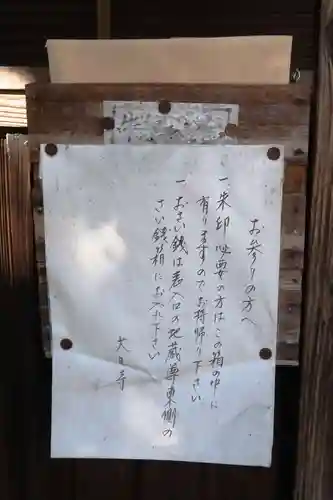 お参りの方へ
一、朱印必要の方はこの箱の中に
有りますのでお持帰り下さい
一、おさい銭は表入口の地蔵尊東側の
さい銭箱にお入れ下さい
大日寺